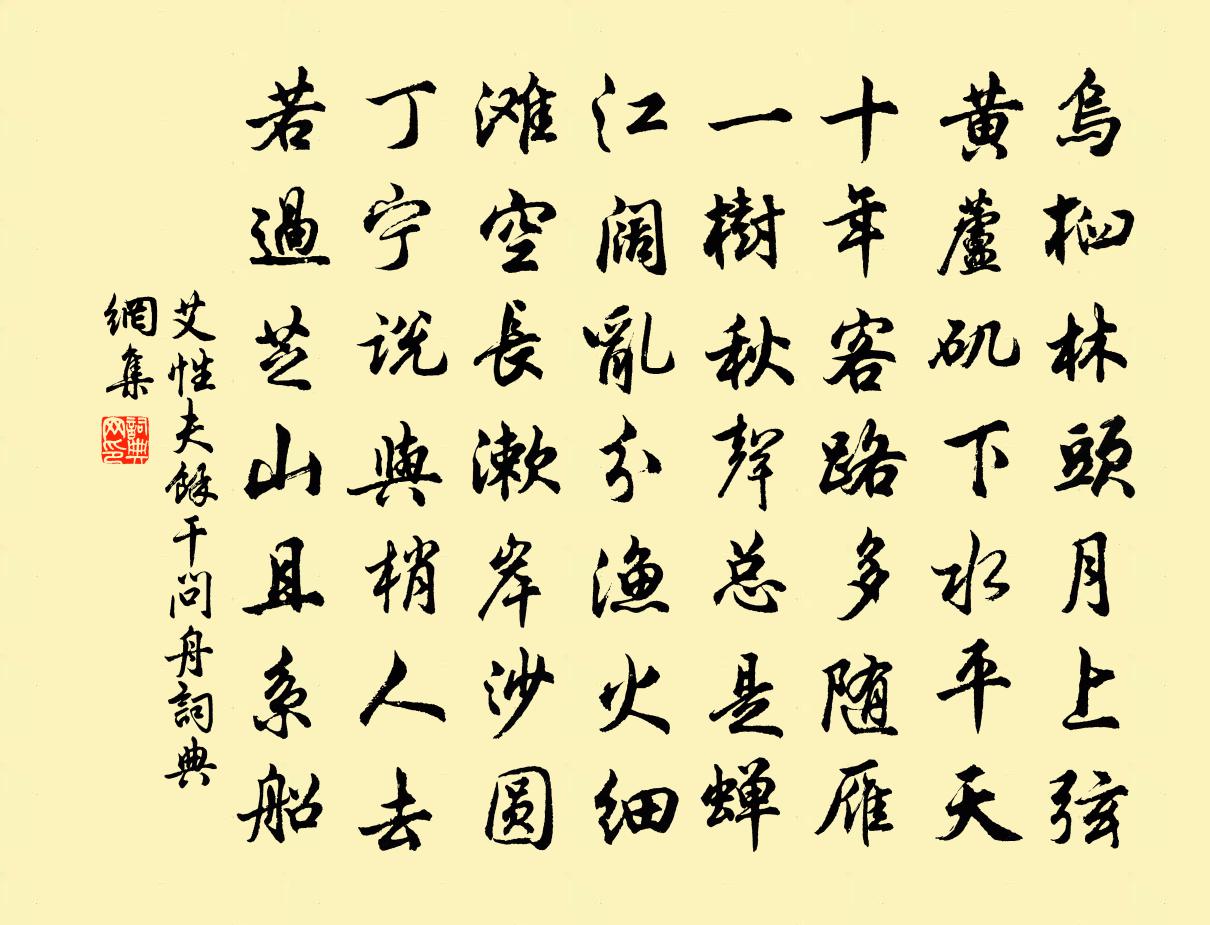 烏桕林頭月上弦
黄蘆矶下水平天
十年客路多随雁
一樹秋聲总是蝉
江阔亂分漁火细
滩空長漱岸沙圆
丁宁说與梢人去
若過芝山且系船
艾性夫餘干问舟詞典
網集
詞典
网印